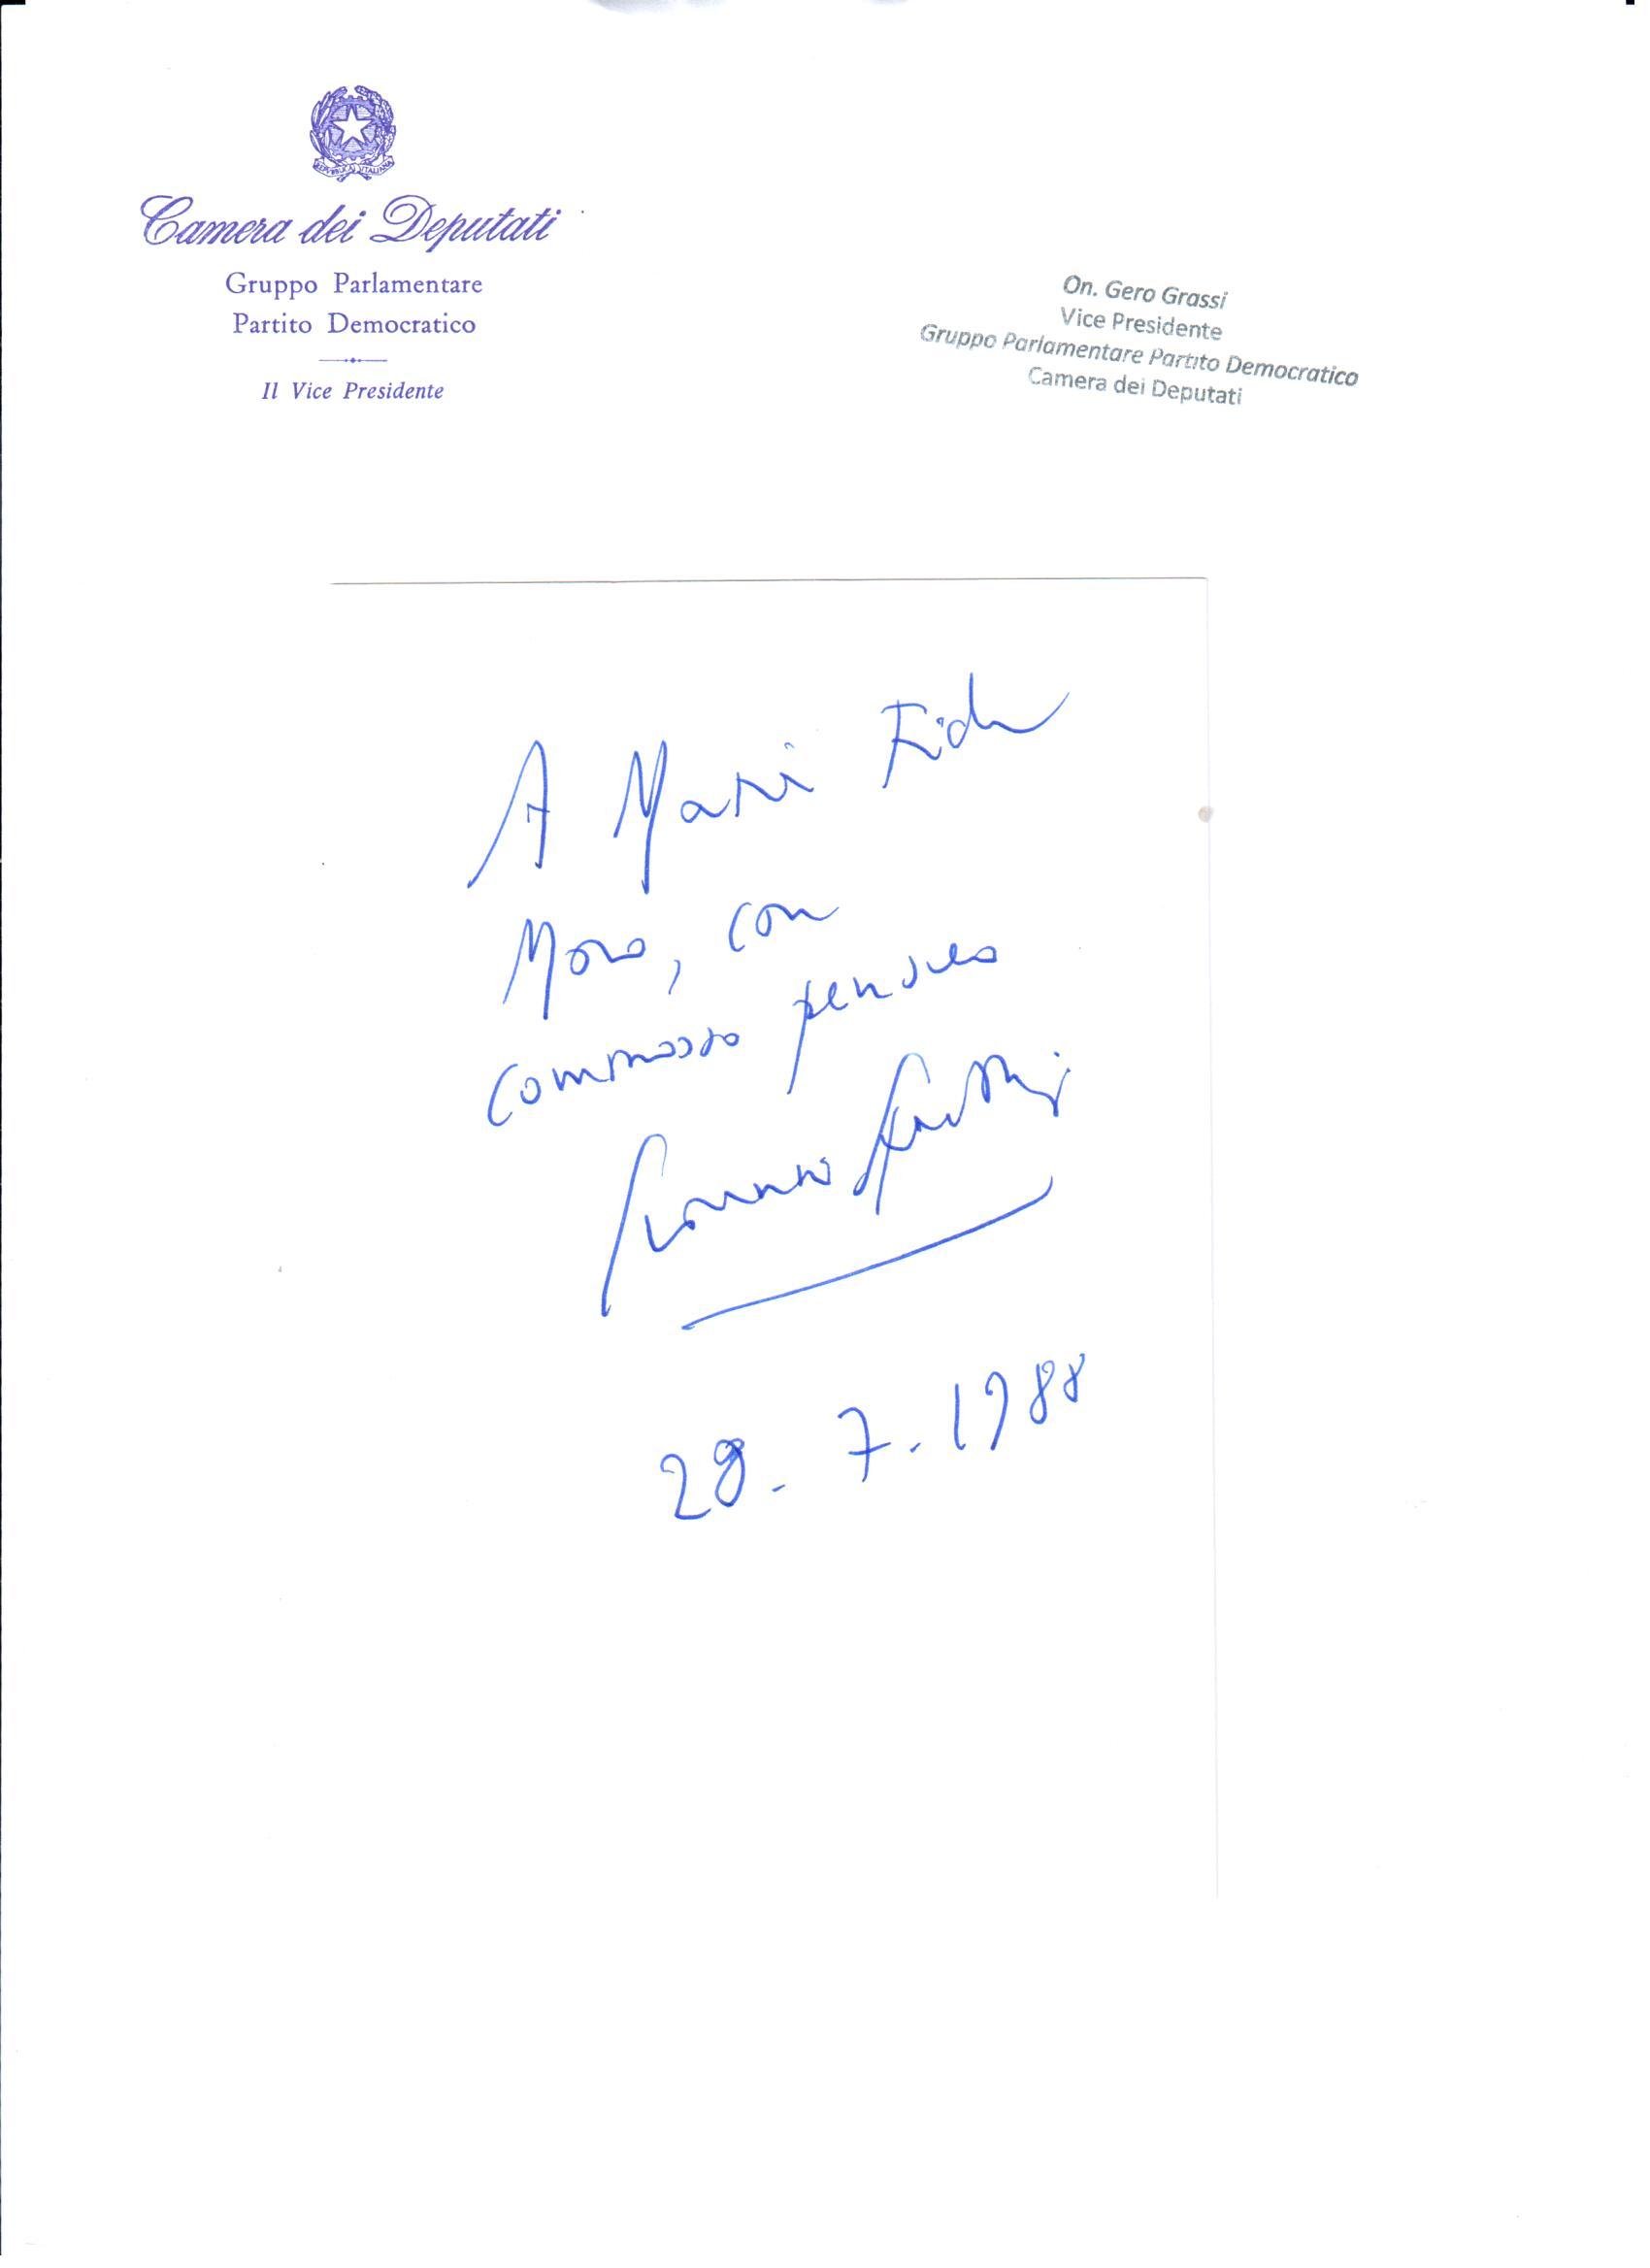 REPVBBLICA ITALIANA
Camera dei Deputati
Gruppo Parlamentare
Partito Democratico
Il Vice Presidente
On. Gero Grassi
Vice Presidente
Gruppo Parlamentare Partito Democratico
Camera dei Deputati
A Maria Fida
Moro, con
commosso pensiero
28.7.1988